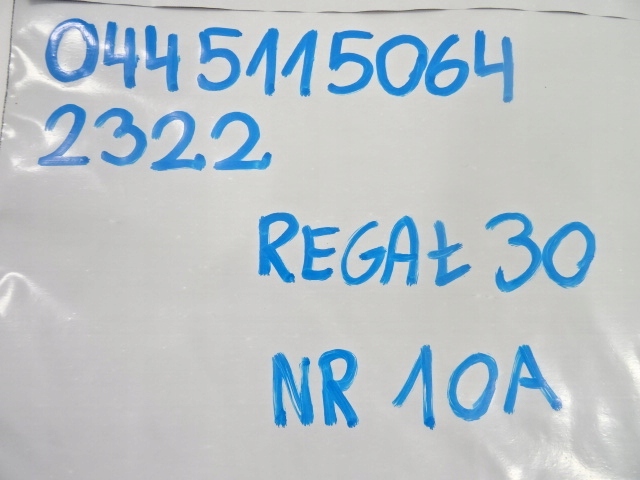 0445115064
2322
REGAŁ 30
NR 10A